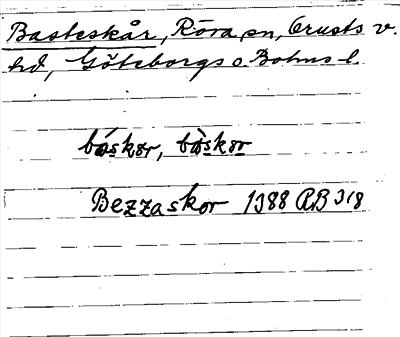 Basteskår, Röra sn, Orusts v.
hd, Göteborgs o. Bohus l.
båskər, bàskər
Bezzaskor 1388 RB 318